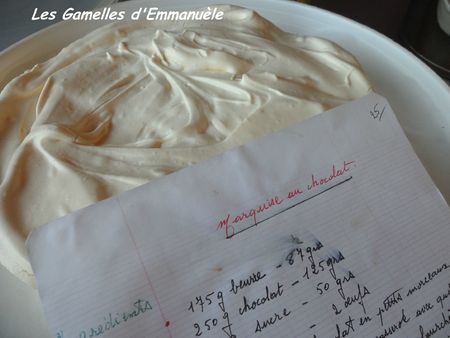 Les Gamelles d'Emmanuèle
25/
Marquise au chocolat.
Ingrédients
175g beurre - 87 grs
250 g chocolat - 125 grs
sucre - 50 grs
- 2 œufs
en petits morceaux
avec